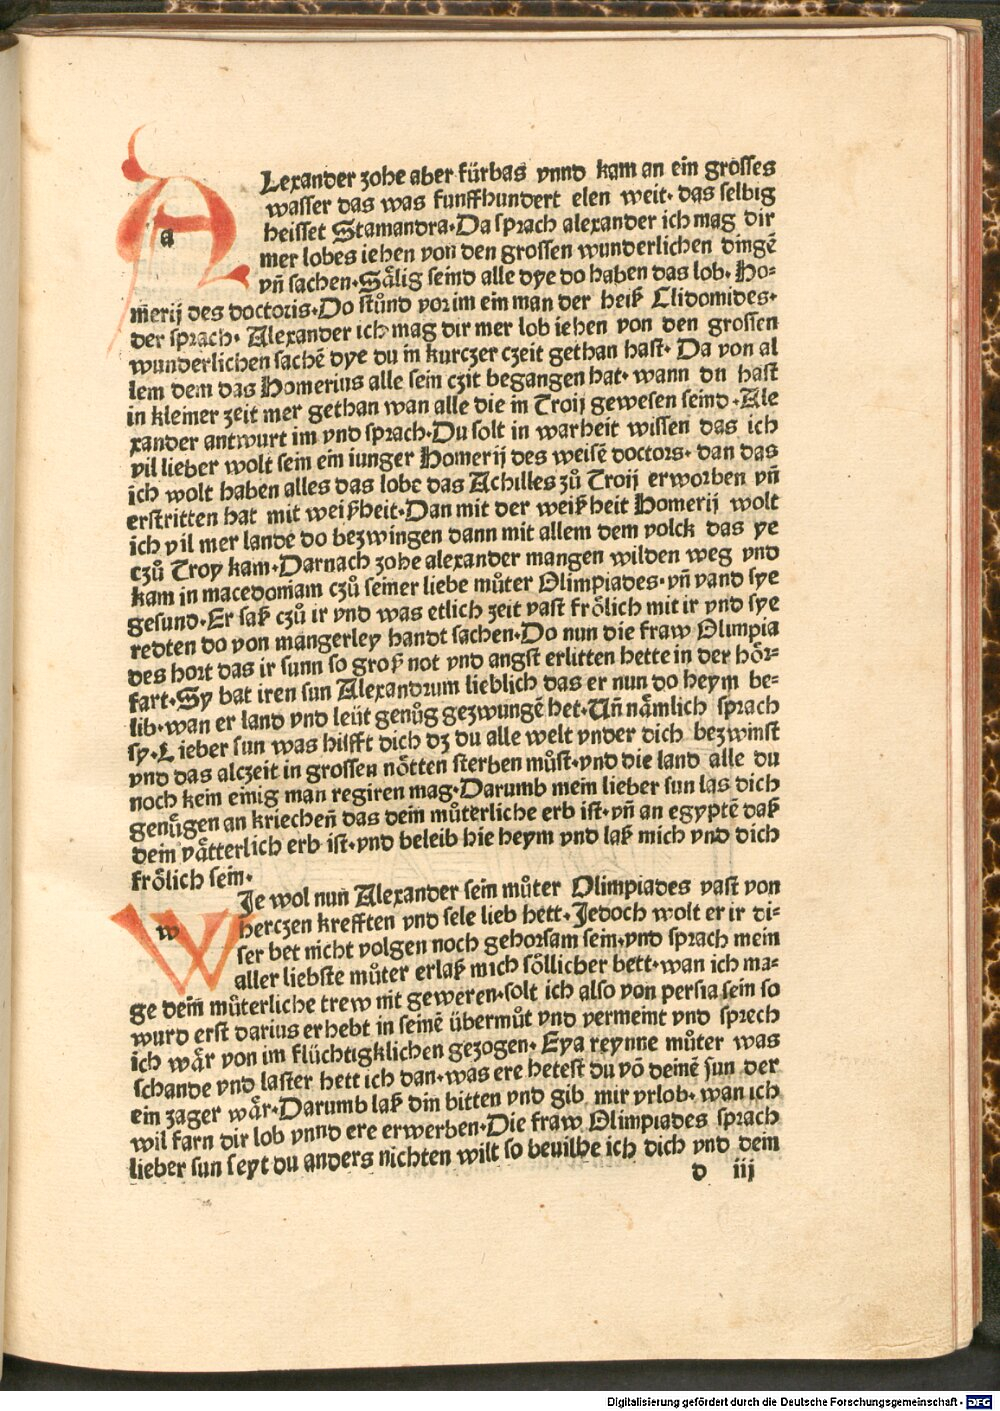 ALexander zohe aber fürbas vnnd kam an ein grosses
wasser das was funffhundert elen weit· das selbig
heisset Stamandra·Da sprach alexander ich mag dir
mer lobes iehen von den grossen wunderlichen dingē
vñ sachen·Sålig seind alle dye do haben das lob· Ho⸗
m̄erij des doctoris·Do stůnd vor im ein man der heiß Clidomides·
der sprach· Alexander ich mag dir mer lob iehen von den grossen
wunderlichen sachē dye du in kurczer czeit gethan hast· Da von al
lem dem das Homerius alle sein czit begangen hat· wann du hast
in kleiner zeit mer gethan wan alle die in Troij gewesen seind ·Ale
xander antwurt im vnd sprach·Du solt in warheit wissen das ich
vil lieber wolt sein ein iunger Homerij des weisē doctors· dan das
ich wolt haben alles das lobe das Achilles zů Troij erworben vñ
erstritten hat mit weißheit·Dan mit der weißheit Homerij wolt
ich vil mer lande do bezwingen dann mit allem dem volck das ye
czů Troy kam·Darnach zohe alexander mangen wilden weg vnd
kam in macedoniam czů seiner liebe můter Olimpiades·vñ vand sye
gesund·Er saß czů ir vnd was etlich zeit vast frölich mit ir vnd sye
redten do von mangerley handt sachen·Do nun die fraw Olimpia
des hort das ir sunn so groß not vnd angst erlitten hette in der hör⸗
fart·Sy bat iren sun Alexandrum lieblich das er nun do heym be⸗
lib·wan er land vnd leüt genůg gezwungē het·Uñ nåmlich sprach
sy·Lieber sun was hilfft dich dz du alle welt vnder dich bezwinst
vnd das alczeit in grossen nötten sterben můst·vnd die land alle du
noch kein einig man regiren mag·Darumb mein lieber sun las dich
genůgen an kriecheñ das dein můterliche erb ist·vñ an egyptē daß
dein våtterlich erb ist·vnd beleib hie heym vnd laß mich vnd dich
frölich sein·
WJe wol nun Alexander sein můter Olimpiades vast von
herczen krefften vnd sele lieb hett·Jedoch wolt er ir di⸗
ser bet nicht volgen noch gehorsam sein·vnd sprach mein
aller liebste můter erlaß mich söllicher bett·wan ich ma⸗
ge deim̄ můterliche trew nit geweren·solt ich also von persia sein so
wurd erst darius erhebt in seinē übermůt vnd vermeint vnd sprech
ich wår von im flüchtigklichen gezogen· Eya reynne můter was
schande vnd laster hett ich dan·was ere hetest du vō deinē sun der
ein zager wår·Darumb laß din bitten vnd gib mir vrlob· wan ich
wil farn dir lob vnnd ere erwerben·Die fraw Olimpiades sprach
lieber sun seyt du anders nichten wilt so beuilhe ich dich vnd dein
d iij
Digitalisierung gefördert durch die Deutsche Forschungsgemeinschaft - DFG